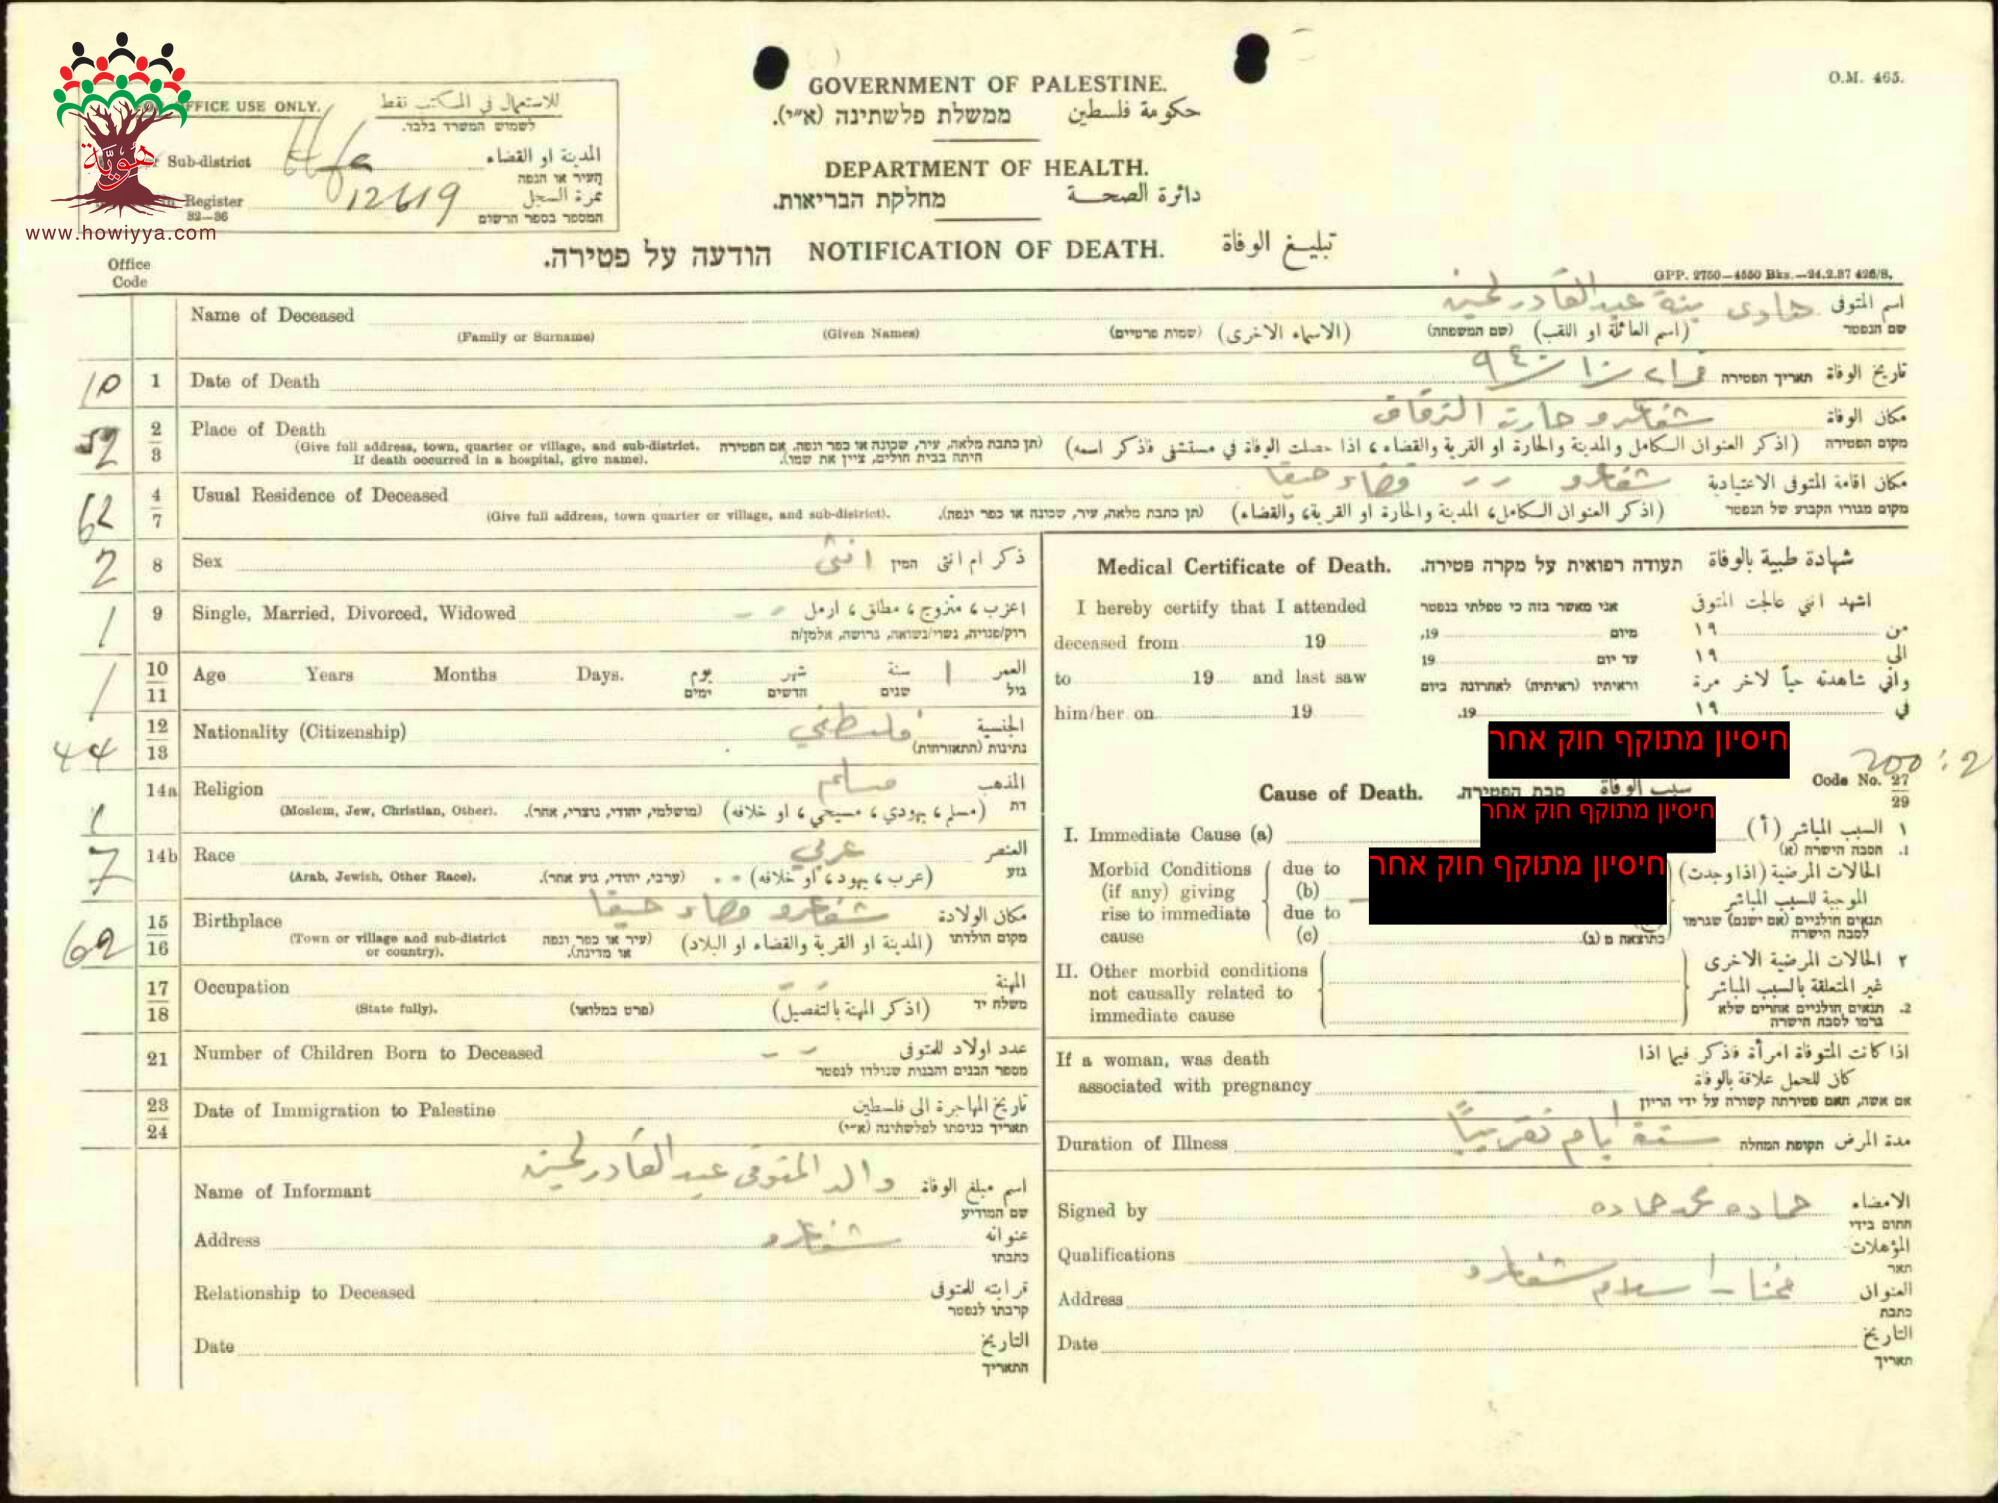 O.M. 465.
GOVERNMENT OF PALESTINE.
ממשלת פלשתינה (א״י). حكومة فلسطين
DEPARTMENT OF HEALTH.
מחלקת הבריאות. دائرة الصحة
OFFICE USE ONLY. للاستعمال في المكتب فقط
לשמוש המשרד בלבד.
Sub-district Hfa المدينة او القضاء
העיר או הנפה
Register 12619 نمرة السجل
32—36 המספר בספר הרשום
هويّة
www.howiyya.com
הודעה על פטירה. NOTIFICATION OF DEATH. تبليغ الوفاة
Office Code
GPP. 2750—4550 Bks.—24.2.37 426/S.
Name of Deceased بنة عبد القادر اسم المتوفى
(Family or Surname) (Given Names) (שמות פרטיים) (الاسماء الاخرى) (שם המשפחה) (اسم العائلة او اللقب) שם הנפטר
10 1 Date of Death תאריך הפטירה تاريخ الوفاة
52 2/3 Place of Death شفاعمرو حارة مكان الوفاة
(Give full address, town, quarter or village, and sub-district. If death occurred in a hospital, give name).
(תן כתבת מלאה, עיר, שכונה או כפר ונפה. אם הפטירה היתה בבית חולים, ציין את שמו).
(اذكر العنوان الكامل والمدينة والحارة او القرية والقضاء، اذا حصلت الوفاة في مستشفى فاذكر اسمه) מקום הפטירה
62 4/7 Usual Residence of Deceased شفاعمرو قضاء حيفا مكان اقامة المتوفى الاعتيادية
(Give full address, town quarter or village, and sub-district). (תן כתבת מלאה, עיר, שכונה או כפר ונפה). (اذكر العنوان الكامل، المدينة والحارة او القرية، والقضاء) מקום מגורו הקבוע של הנפטר
2 8 Sex انثى המין ذكر ام انثى
1 9 Single, Married, Divorced, Widowed اعزب، متزوج، مطلق، ارمل
רוק/פנויה, נשוי/נשואה, גרוש/ה, אלמן/ה
1 10/11 Age Years Months Days. يوم شهر سنة ١ العمر
ימים חדשים שנים גיל
44 12/13 Nationality (Citizenship) فلسطيني الجنسية
נתינות (התאזרחות)
1 14a Religion مسلم المذهب
(Moslem, Jew, Christian, Other). (מושלמי, יהודי, נוצרי, אחר). (مسلم، يهودي، مسيحي، او خلافه) דת
7 14b Race عربي العنصر
(Arab, Jewish, Other Race). (ערבי, יהודי, גזע אחר). (عرب، يهود، او خلافه) גזע
62 15/16 Birthplace شفاعمرو قضاء حيفا مكان الولادة
(Town or village and sub-district or country). (עיר או כפר ונפה או מדינה). (المدينة او القرية والقضاء او البلاد) מקום הולדתו
17/18 Occupation المهنة
(State fully). (פרט במלואו) (اذكر المهنة بالتفصيل) משלח יד
21 Number of Children Born to Deceased عدد اولاد للمتوفى
מספר הבנים והבנות שנולדו לנפטר
23/24 Date of Immigration to Palestine تاريخ المهاجرة الى فلسطين
תאריך כניסתו לפלשתינה (א״י)
Name of Informant والد المتوفى عبد القادر اسم مبلغ الوفاة
שם המודיע
Address شفاعمرو عنوانه
כתבתו
Relationship to Deceased قرابته للمتوفى
קרבתו לנפטר
Date التاريخ
התאריך
Medical Certificate of Death. תעודה רפואית על מקרה פטירה. شهادة طبية بالوفاة
I hereby certify that I attended אני מאשר בזה כי טפלתי בנפטר اشهد انني عالجت المتوفى
deceased from 19 19, מיום ١٩ من
to 19 and last saw 19 עד יום ١٩ الى
וראיתיו (ראיתיה) לאחרונה ביום واني شاهدته حياً لاخر مرة
him/her on 19 19. ١٩ في
חיסיון מתוקף חוק אחר
200:2
Cause of Death. סבת הפטירה. سبب الوفاة Code No. 27/29
חיסיון מתוקף חוק אחר
I. Immediate Cause (a) ١ السبب المباشر (أ)
1. הסבה הישרה (א)
חיסיון מתוקף חוק אחר
Morbid Conditions (if any) giving rise to immediate cause due to (b) due to (c)
الحالات المرضية (اذا وجدت) الموجبة للسبب المباشر
תנאים חולניים (אם ישנם) שגרמו לסבה הישרה
כתוצאה מ (ג).
II. Other morbid conditions not causally related to immediate cause
٢ الحالات المرضية الاخرى غير المتعلقة بالسبب المباشر
2. תנאים חולניים אחרים שלא גרמו לסבה הישרה
If a woman, was death associated with pregnancy
اذا كانت المتوفاة امرأة فاذكر فيما اذا كان للحمل علاقة بالوفاة
אם אשה, האם פטירתה קשורה על ידי הריון
Duration of Illness ستة ايام تقريباً תקופת המחלה مدة المرض
Signed by حماده محمد حماده الامضاء
חתום בידי
Qualifications المؤهلات
תאר
Address مختار اسلام شفاعمرو العنوان
כתבת
Date التاريخ
תאריך